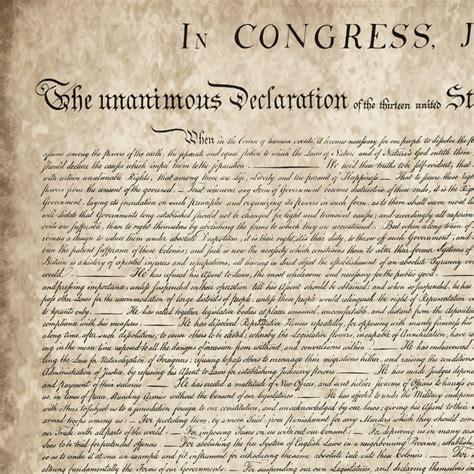 IN CONGRESS, J
The unanimous Declaration of the thirteen united St
When in the Course of human events, it becomes necessary for one people to dissolve th
among the powers of the earth, the separate and equal station to which the Laws of Nature and of Nature's God entitle them
should declare the causes which impel them to the separation. — We hold these truths to be self-evident, that
with certain unalienable Rights, that among these are Life, Liberty and the pursuit of Happiness. — That to secure these rights
powers from the consent of the governed, — That whenever any Form of Government becomes destructive of these ends, it is the R
Government, laying its foundation on such principles and organizing its powers in such form, as to them shall seem most
will dictate that Governments long established should not be changed for light and transient causes; and accordingly all exper
evils are sufferable, than to right themselves by abolishing the forms to which they are accustomed. But when a long train of
a design to reduce them under absolute Despotism, it is their right, it is their duty, to throw off such Government, and
the patient sufferance of these Colonies; and such is now the necessity which constrains them to alter their former Systems of
Britain is a history of repeated injuries and usurpations, all having in direct object the establishment of an absolute Tyranny
world. — He has refused his Assent to Laws, the most wholesome and necessary for the public good.
and pressing importance, unless suspended in their operation till his Assent should be obtained; and when so suspended, he has
pass other Laws for the accommodation of large districts of people, unless those people would relinquish the right of Representation
to tyrants only. — He has called together legislative bodies at places unusual, uncomfortable, and distant from the
compliance with his measures. — He has dissolved Representative Houses repeatedly, for opposing with manly firmness
long time, after such dissolutions, to cause others to be elected; whereby the Legislative powers, incapable of Annihilation, have
ing in the mean time exposed to all the dangers of invasion from without, and convulsions within. — He has endeavour
ing the Laws for Naturalization of Foreigners; refusing to pass others to encourage their migrations hither, and raising the conditions
Administration of Justice, by refusing his Assent to Laws for establishing Judiciary powers. — He has made Judges
and payment of their salaries. — He has erected a multitude of New Offices, and sent hither swarms of Officers to harass
us, in times of peace, Standing Armies without the Consent of our legislatures. — He has
others to subject us to a jurisdiction foreign to our constitution, and unacknowledged by our laws; giving his Assent to their
armed troops among us: — For protecting them, by a mock Trial, from punishment for any Murders which they should
our Trade with all parts of the world: — For imposing Taxes on us without our Consent: —
Seas to be tried for pretended offences — For abolishing the free System of English Laws in a neighbouring Province,
so as to render it at once an example and fit instrument for introducing the same absolute rule into these Colonies: —
altering fundamentally the Forms of our Governments: — For suspending our own Legislatures, and